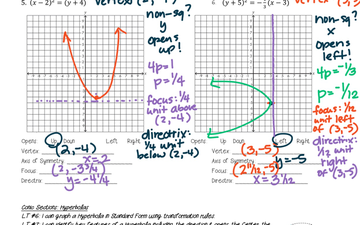 5. (x - 2)² = (y + 4)
vertex (2, -4)
non-sq?
y
opens
up!
4p = 1
p = 1/4
focus: 1/4
unit above
(2, -4)
directrix:
1/4 unit
below (2, -4)
Opens Up Down Left Right
Vertex (2, -4)
Axis of Symmetry x = 2
Focus (2, -3 3/4)
Directrix y = -4 1/4
6. (y + 5)² = -1/3 (x - 3)
non-sq?
x
opens
left!
4p = -1/3
p = -1/12
focus: 1/12
unit left
of (3, -5)
directrix:
1/12 unit
right
of (3, -5)
Opens Up Down Left Right
Vertex (3, -5)
Axis of Symmetry y = -5
Focus (2 11/12, -5)
Directrix x = 3 1/12
Conic Sections: Hyperbolas
LT #6: I can graph a Hyperbola in Standard Form using transformation rules